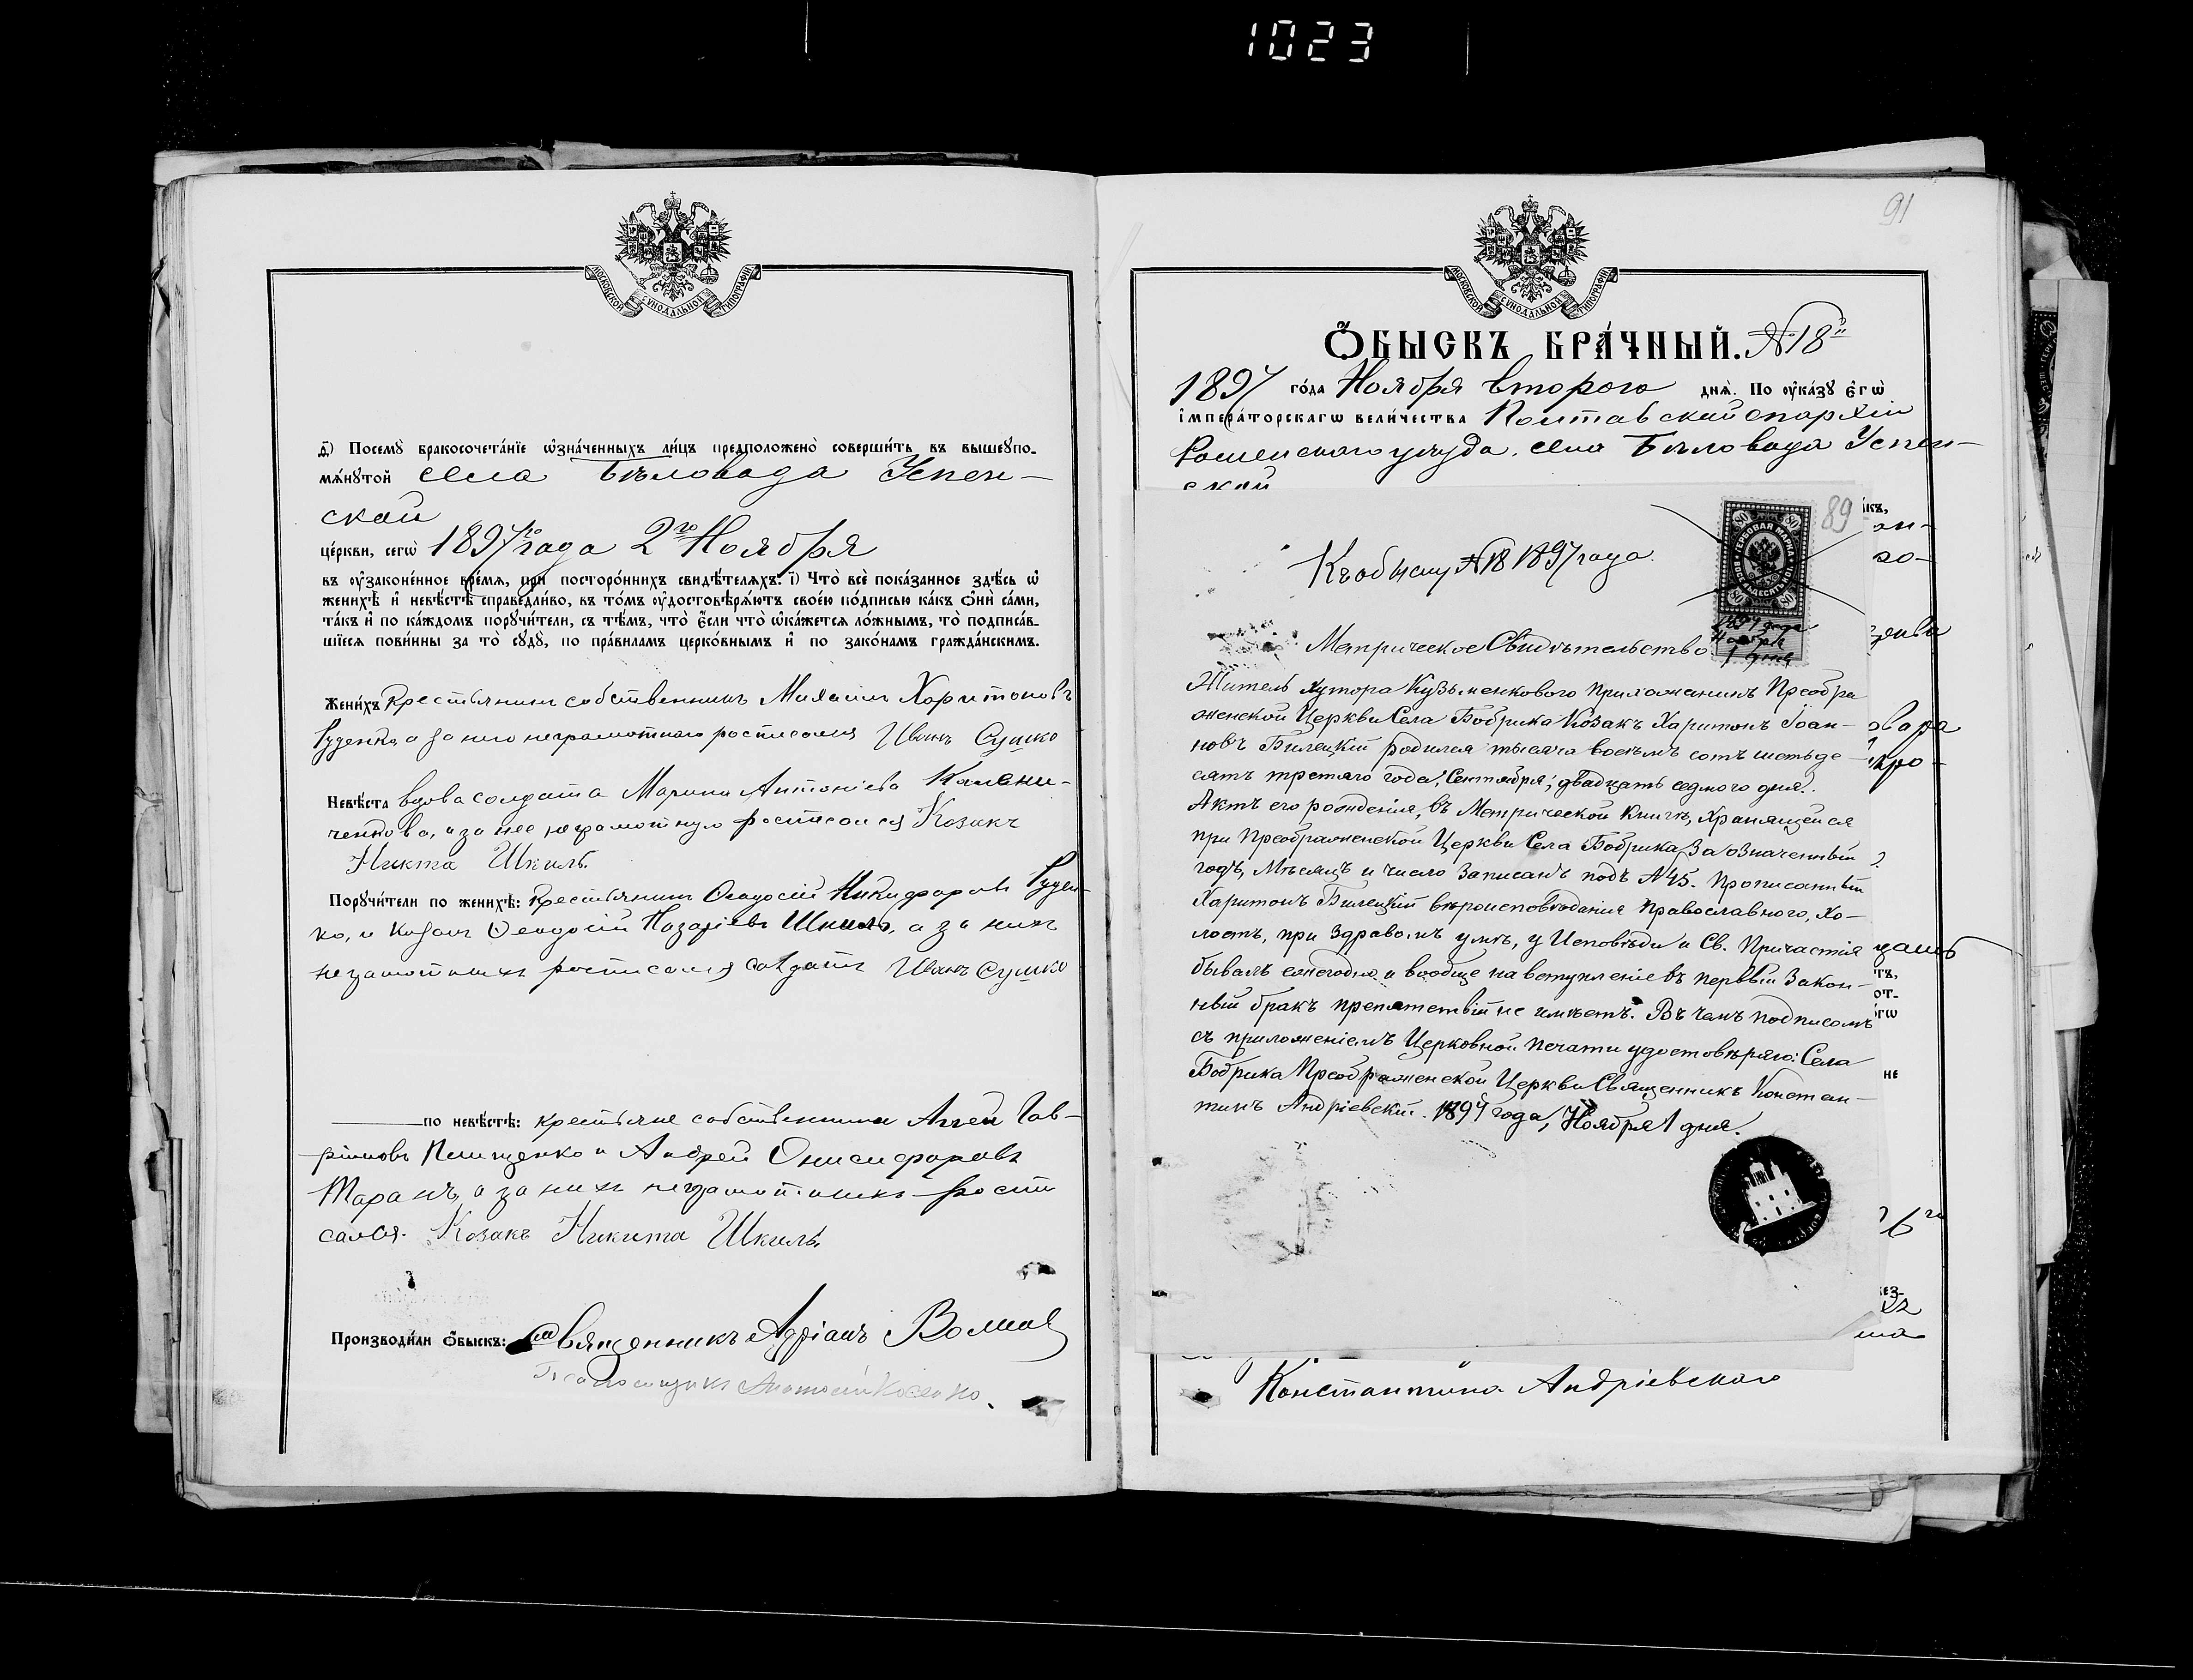 1023
91
МОСКОВСКОЙ СѴНОДАЛЬНОЙ ТИПОГРАФІИ
д҃) Посемꙋ̀ бракосочета́нїе ѡ҆зна́ченныхъ ли́цъ предположено̀ соверши́ть въ вышеꙋпо-
мѧ́нꙋтой села Бѣловода Успен-
ской
це́ркви, сегѡ̀ 1897го года 2го Ноября
въ ᲂу҆зако́ненное вре́мѧ, при посторо́ннихъ свидѣ́телѧхъ. і҃) Что̀ всѐ пока́занное здѣ́сь ѡ҆
женихѣ̀ и҆ невѣ́стѣ справедли́во, въ то́мъ ᲂу҆достовѣрѧ́ютъ свое́ю по́дписью ка́къ ѻ҆нѝ са́ми,
та́къ и҆ по ка́ждомъ порꙋчи́тели, съ тѣ́мъ, что̀ є҆́сли что̀ ѡ҆ка́жетсѧ ло́жнымъ, то̀ подписа́в-
шїесѧ пови́нны за то̀ сꙋдꙋ̀, по пра́виламъ церко́внымъ и҆ по зако́намъ гражда́нскимъ.
Жени́хъ Крестьянинъ собственникъ Михаилъ Харитоновъ
Руденко, а за него неграмотнаго росписался Иванъ Сушко
Невѣ́ста вдова солдата Марина Антоніева
а за нее неграмотную росписался Козакъ
Никита Шкиль.
Порꙋчи́тели по женихѣ̀: Крестьянинъ Феодосій Никифоровъ Руден-
ко, и Козакъ Феодосій Назаріевъ Шкиль, а за нихъ
неграмотныхъ росписался солдатъ Иванъ Сушко
по невѣ́стѣ: крестьяне собственники Гав-
риловъ и Андрей Онисифоровъ
Таранъ, а за нихъ неграмотныхъ роспи
сался. Козакъ Никита Шкиль.
Производи́ли ѻ҆́быскъ: Священникъ Адріанъ
Псаломщикъ
МОСКОВСКОЙ СѴНОДАЛЬНОЙ ТИПОГРАФІИ
Ѻ҆́БЫСКЪ БРА́ЧНЫЙ. № 18й
1897 го́да Ноября второго днѧ̀. По ᲂу҆ка́зꙋ є҆гѡ̀
і҆мпера́торскагѡ вели́чества Полтавской епархіи
Роменскаго уѣзда, села Бѣловода Успен-
ской
89
80 80
ГЕРБОВАЯ МАРКА
ВОСЕМЬДЕСЯТЪ КОП.
80 80
1897 года
Ноября
1 дня
Къ обыску № 18 1897 года.
Метрическое Свидѣтельство
Житель хутора Кузьменкового прихожанинъ Преобра
женской Церкви Села Бобрика Козакъ Харитонъ Іоан-
новъ Билецкій родился тысяча восемъ сотъ шестьде-
сятъ третяго года, Сентября, двадцать седмого дня.
Актъ его рожденія, въ Метрической Книгѣ, Хранящейся
при Преображенской Церкви Села Бобрика, За означенный
годъ, Мѣсяцъ и число Записанъ подъ № 45. Прописанный
Харитонъ Билецкій вѣроисповѣданія Православного, Хо-
лостъ, при Здравомъ умѣ, у Исповѣди и Св. Причастія
бываетъ ежегодно и вообще на вступленіе въ первый Закон-
ный бракъ препятствій не имѣетъ. Въ чемъ подписомъ
съ приложеніемъ Церковной печати удостовѣряю: Села
Бобрика Преображенской Церкви Священникъ Констан-
тинъ Андріевскій. 1897 года, Ноября 1 дня.
Константина Андріевского